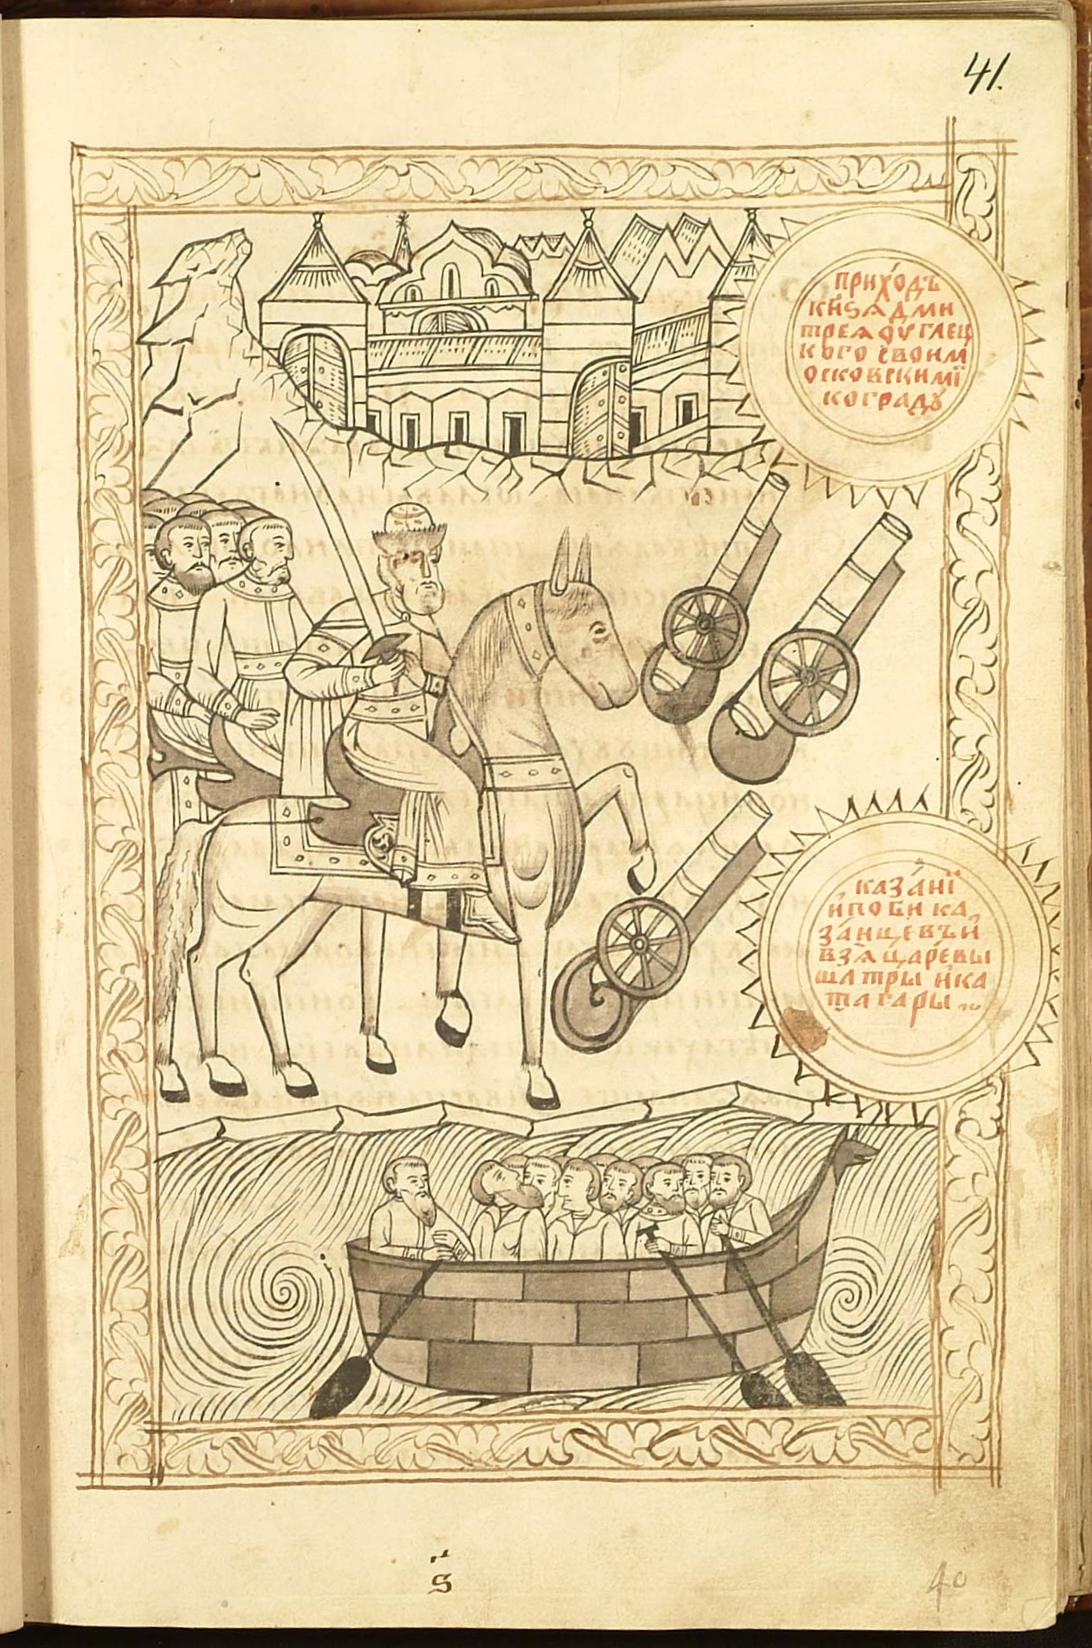 41.
прихо́дъ
кн҃ѕѧ дми
треѧ ѹглец
кого своим
осковскимї
ко граду
каза́нї
и҆ поби ка
за́нцевъ и҆
взѧ̀ царе́вы
шатры и҆ ка
та гары
ѕ҃
40